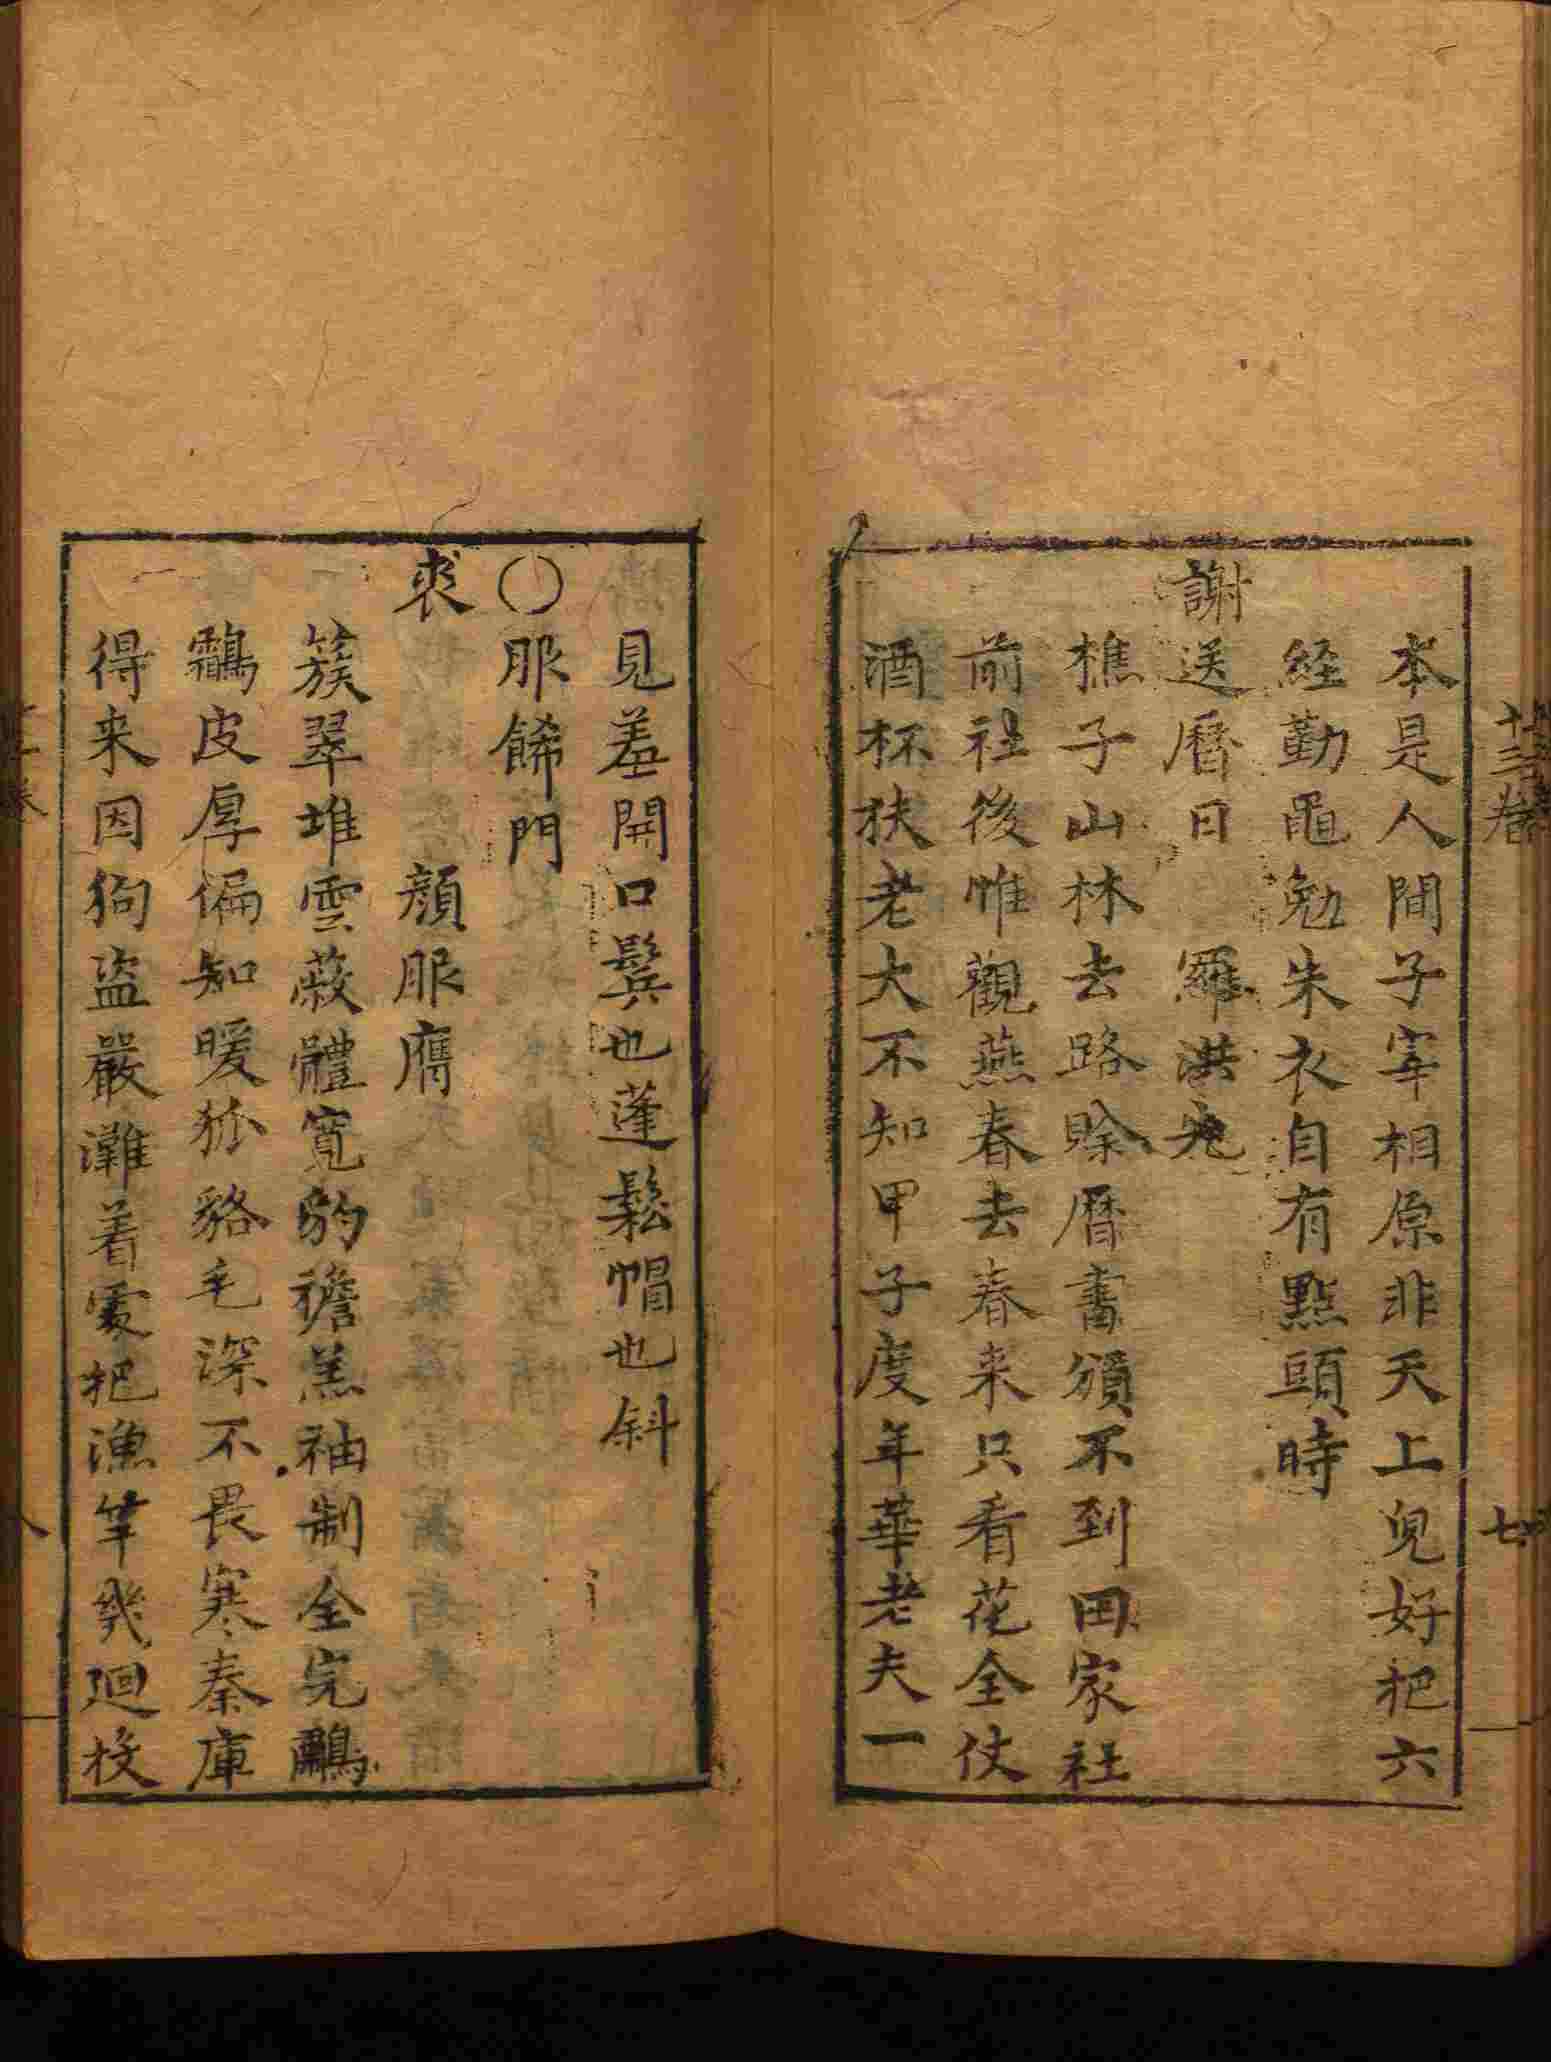 十三卷 七
本是人間子宰相原非天上兒好把六
経勤黽勉朱衣自有點頭時
謝送曆日 羅洪先
樵子山林去路賒曆書頒不到田家社
前社後惟觀燕春去春来只看花全仗
酒杯扶老大不知甲子度年華老夫一
見羞開口鬂也蓬鬆帽也斜
○服餙門
裘 顏服膺
簇翠堆雲蔽體寛豹襜羔袖制全完鸘
鸘皮厚偏知暖狐貉毛深不畏寒秦庫
得来因狗盗嚴灘着處把漁竿幾廻授